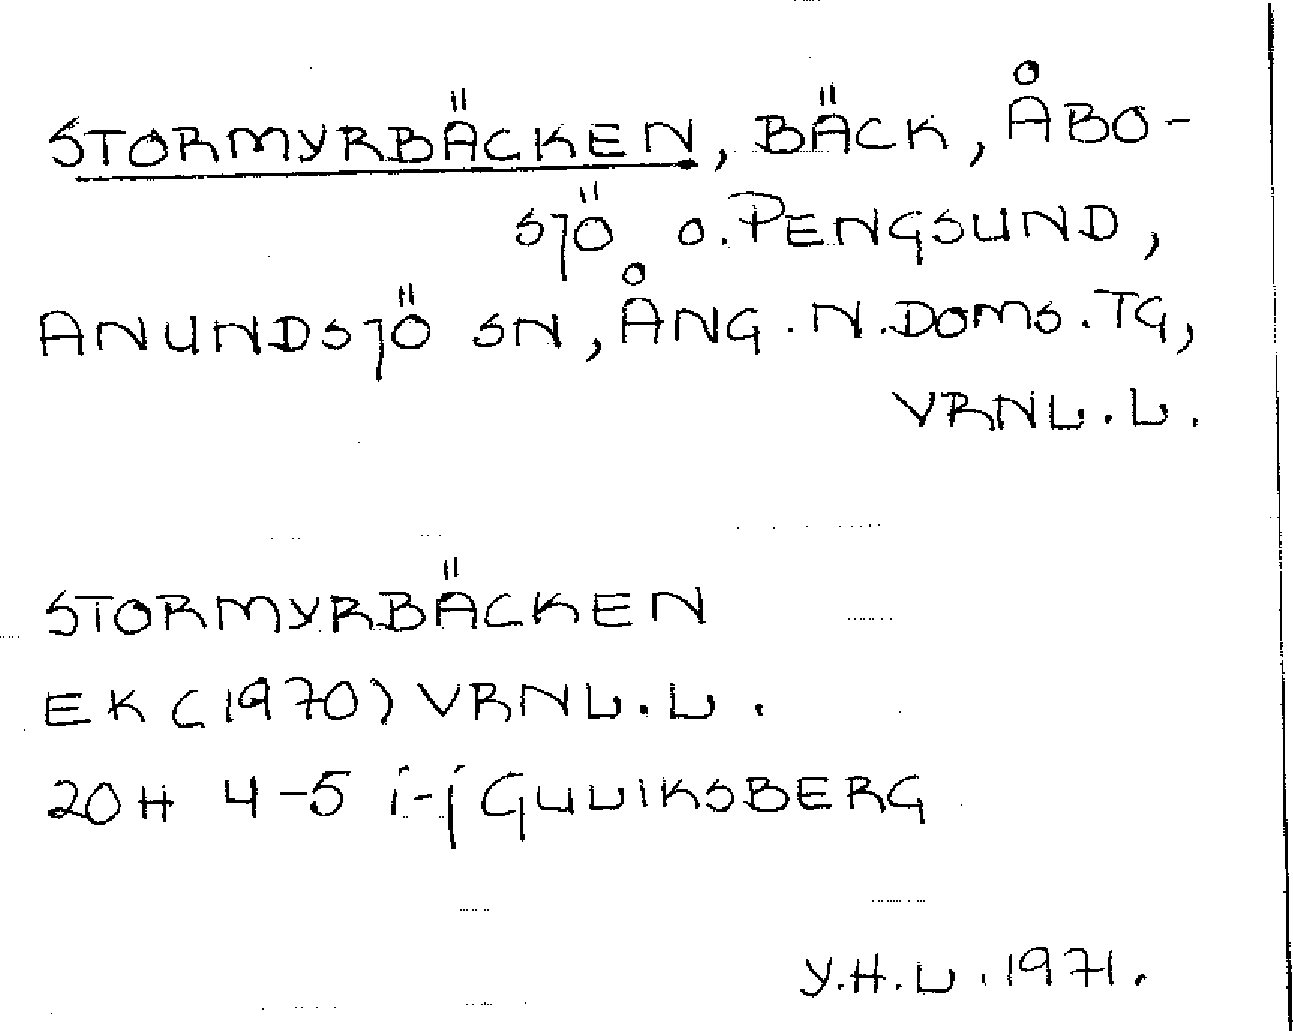 STORMYRBÄCKEN, BÄCK, ÅBO-
SJÖ o. PENGSUND,
ANUNDSJÖ SN, ÅNG. N. DOMS. TG,
VRNL. L.
STORMYRBÄCKEN
EK (1970) VRNL. L.
20H 4-5 i-j GULLIKSBERG
Y.H.L. 1971.